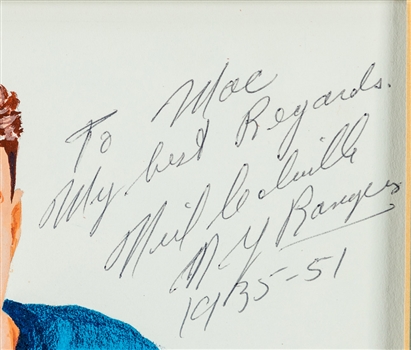 To Mac
My best Regards.
Neil Colville
N.Y Rangers
1935-51